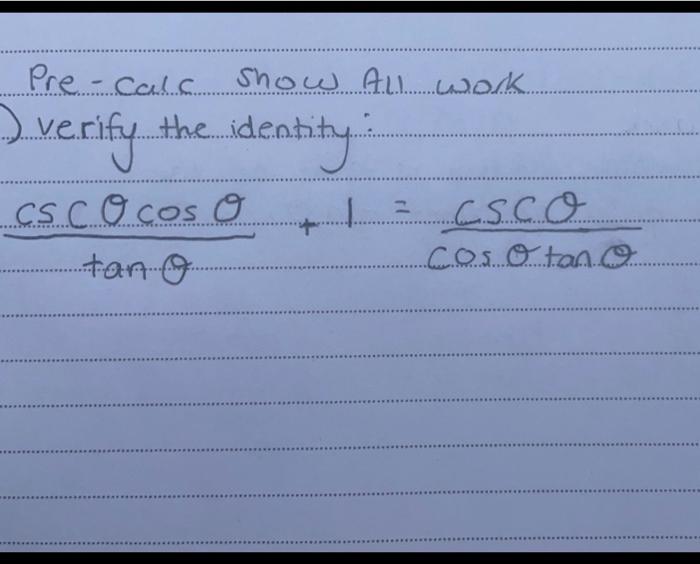 Pre-calc show All work
) verify the identity:
cscθcosθ / tanθ + 1 = cscθ / cosθtanθ